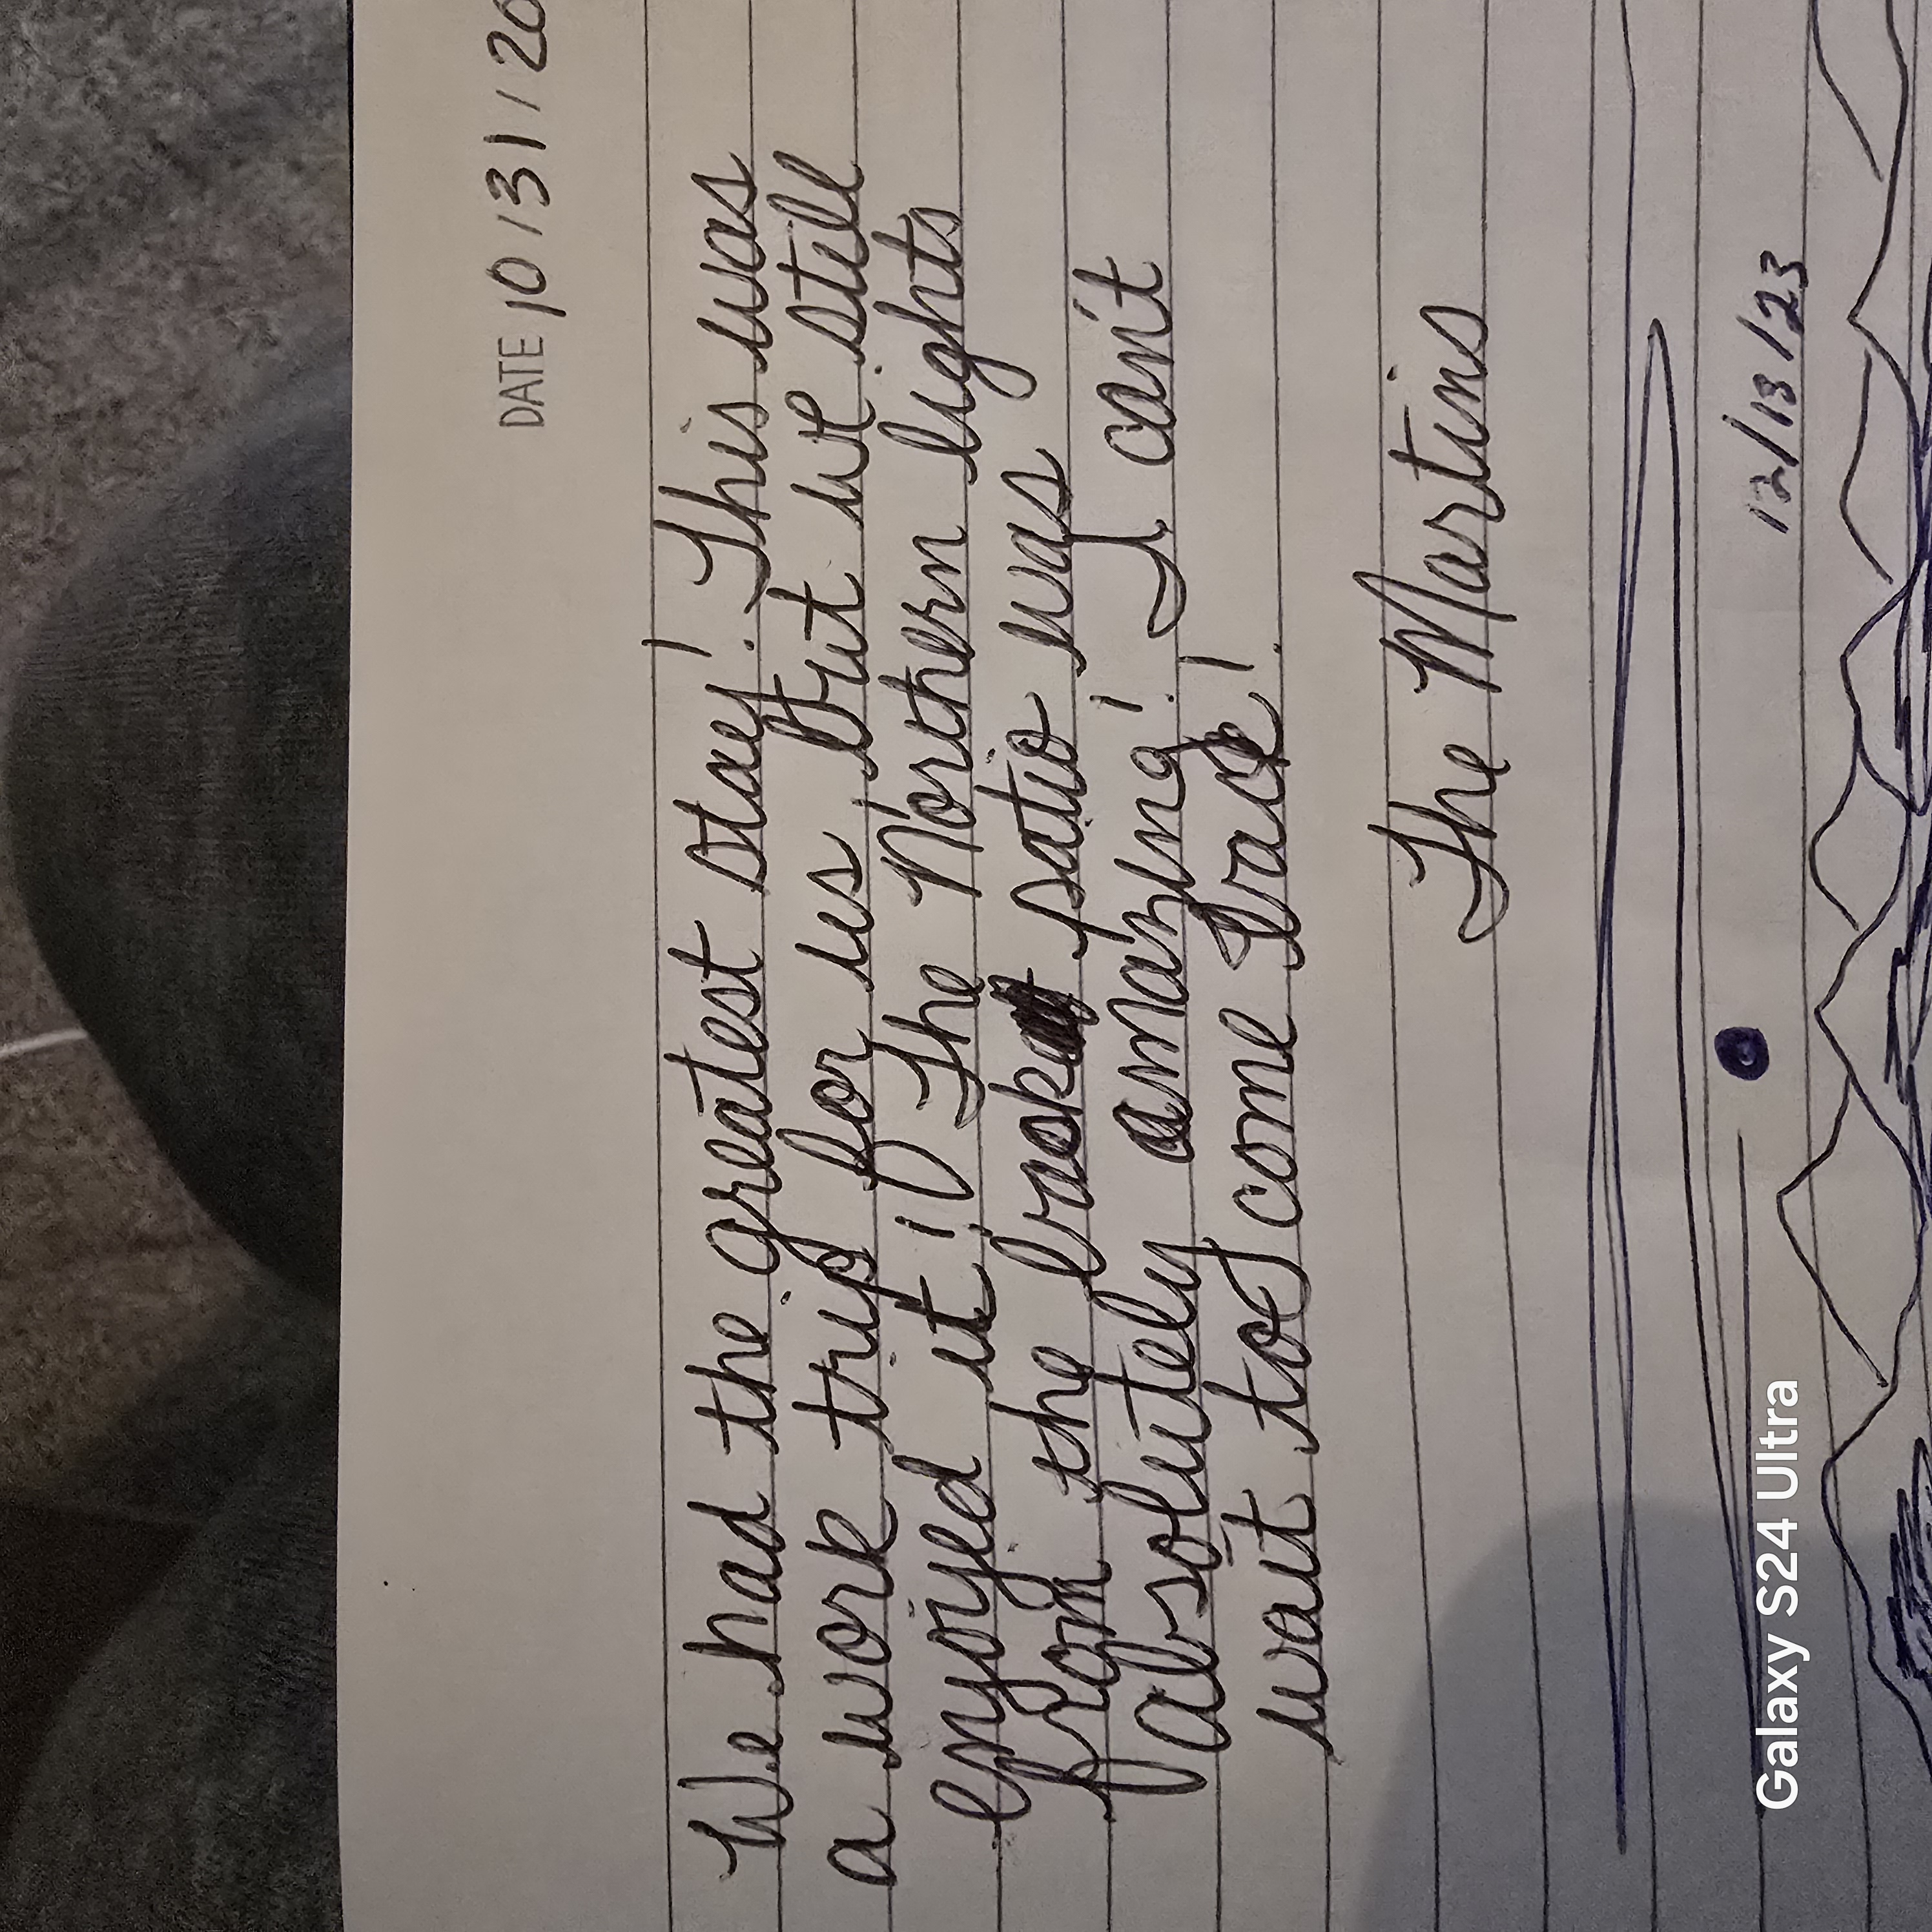 DATE 10/31/20
We had the greatest stay! This was
a work trip for us but we still
enjoyed it! The Northern lights
from the back patio was
absolutely amazing! I can't
wait to come back!
The Martins
12/13/23
Galaxy S24 Ultra